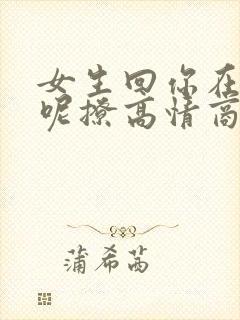 女生回你在
呢撩高情商
蒲希茜